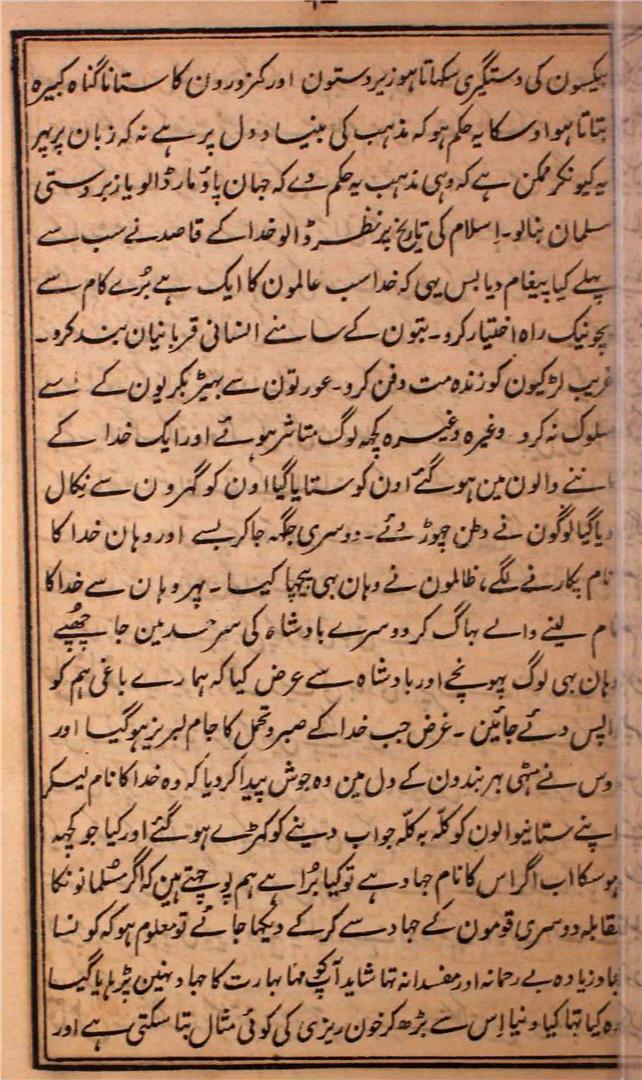 بیکسون کی دستگیری سکہاتا ہو زیردستون اور کمزورون کا ستانا گناہ کبیرہ
بتاتا ہو اوسکا یہ حکم ہو کہ مذہب کی بنیاد دل پر ہے نہ کہ زبان پر پہر
یہ کیونکر ممکن ہے کہ وہی مذہب یہ حکم دے کہ جہان پاؤ مار ڈالو یا زبردستی
مسلمان بنالو۔ اسلام کی تاریخ پر نظر ڈالو خدا کے قاصد نے سب سے
پہلے کیا پیغام دیا بس یہی کہ خدا سب عالمون کا ایک ہے بُرے کام سے
بچو نیک راہ اختیار کرو۔ بتون کے سامنے انسانی قربانیان بند کرو۔
غریب لڑکیون کو زندہ مت دفن کرو۔ عورتون سے بہیڑ بکریون کے سے
سلوک نہ کرو وغیرہ وغیرہ کچھ لوگ متاثر ہوئے اور ایک خدا کے
ماننے والون مین ہوگئے اون کو ستایا گیا اون کو گہرون سے نکال
دیا گیا لوگون نے وطن چہوڑ دئے۔ دوسری جگہہ جاکر بسے اور وہان خدا کا
نام پکارنے لگے، ظالمون نے وہان بہی پیچہا کیا۔ پہر وہان سے خدا کا
نام لینے والے بہاگ کر دوسرے بادشاہ کی سرحد مین جا چھپے
وہان بہی لوگ پہونچے اور بادشاہ سے عرض کیا کہ ہمارے باغی ہم کو
واپس دئے جائین۔ غرض جب خدا کے صبر و تحمل کا جام لبریز ہوگیا اور
اوس نے مٹہی بہر بندون کے دل مین وہ جوش پیدا کردیا کہ وہ خدا کا نام لیکر
اپنے ستانیوالون کو کلّہ بہ کلّہ جواب دینے کو کہڑے ہوگئے اور کیا جو کچہہ
ہوسکا اب اگر اس کا نام جہاد ہے تو کیا بُرا ہے ہم پوچہتے ہین کہ اگر مُسلمانونکا
مقابلہ دوسری قومون کے جہاد سے کرکے دیکہا جائے تو معلوم ہو کہ کونسا
جہاد زیادہ بے رحمانہ اور مفسدانہ تہا شاید آپ کو مہا بہارت کا جہاد نہین پڑہایا گیا
وہ کیا تہا کیا دنیا اِس سے بڑھ کر خون ریزی کی کوئی مثال بتا سکتی ہے اور